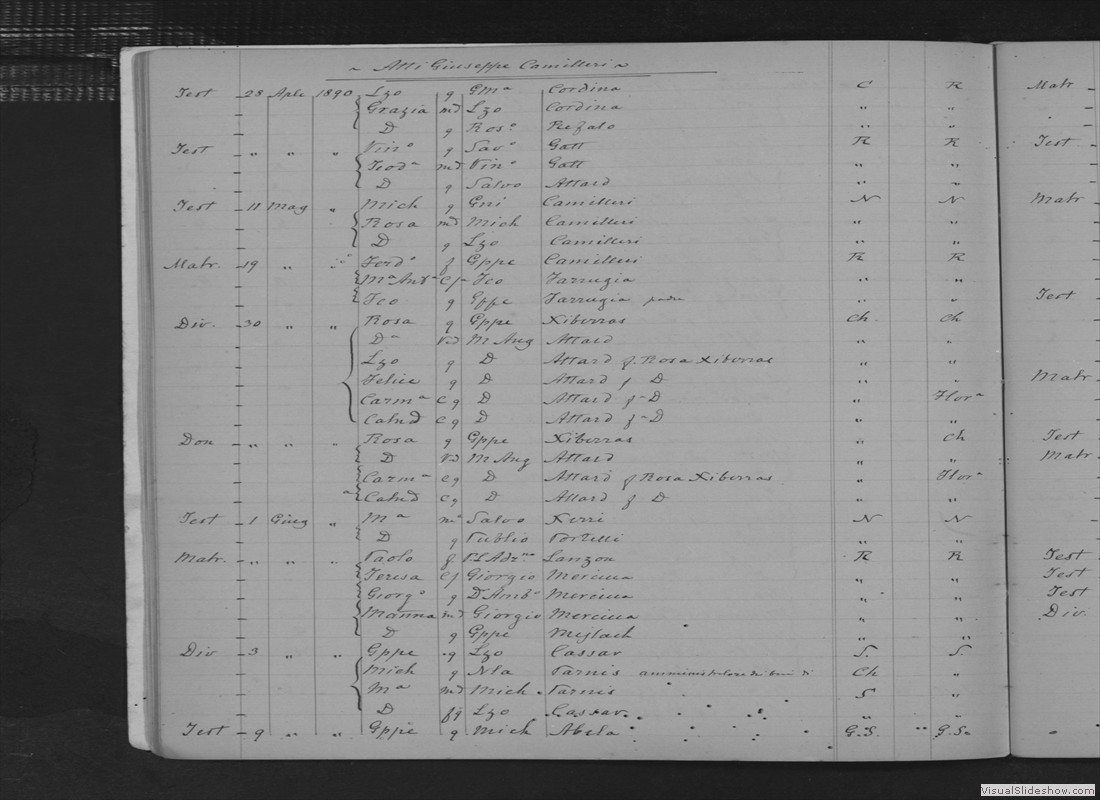 Atti Giuseppe Camilleri
Test 28 Aple 1890 Lzo g Gma Cordina C R Matr
Grazia md Lzo Cordina " "
D g Roso Refalo " "
Test " " " Vino g Savo Gatt R R Test
Teoda md Vino Gatt " "
D g Salvo Attard " "
Test 11 Mag " Mich g Gni Camilleri N N Matr
Rosa md Mich Camilleri " "
D g Lzo Camilleri " "
Matr. 19 " " Ferdo f Gppe Camilleri R R
Ma Anta Cf Fco Farrugia " "
Fco g Gppe Farrugia " " Test
Div. 30 " " Rosa g Gppe Xiberras Ch Ch
Da Vd M Ang Attard " "
Lzo g D Attard f. Rosa Xiberras " "
Felice g D Attard f D " " Matr
Carma Cg D Attard f D " Flora
Catnd Cg D Attard f D " "
Don " " " Rosa g Gppe Xiberras " Ch Test
D Vd M Ang Attard " " Matr
Carma Cg D Attard f Rosa Xiberras " Flora
Catnd Cg D Attard f D " "
Test 1 Giug " Ma m Salvo Xerri N N
D g Publio Portelli " "
Matr. " " " Paolo f Lanzon R R Test
Teresa Cf Giorgio Mercieca " " Test
Giorgo g D Anto Mercieca " " Test
Marina md Giorgio Mercieca " " Div.
D g Gppe Mejlach " "
Div 3 " " Gppe g Lzo Cassar S. S.
Mich g Nla Farnis amministratore dei beni di Ch "
Ma md Mich Farnis S "
D fg Lzo Cassar " "
Test 9 " " Gppe g Mich Abela G.S. G.S.
VisualSlideshow.com